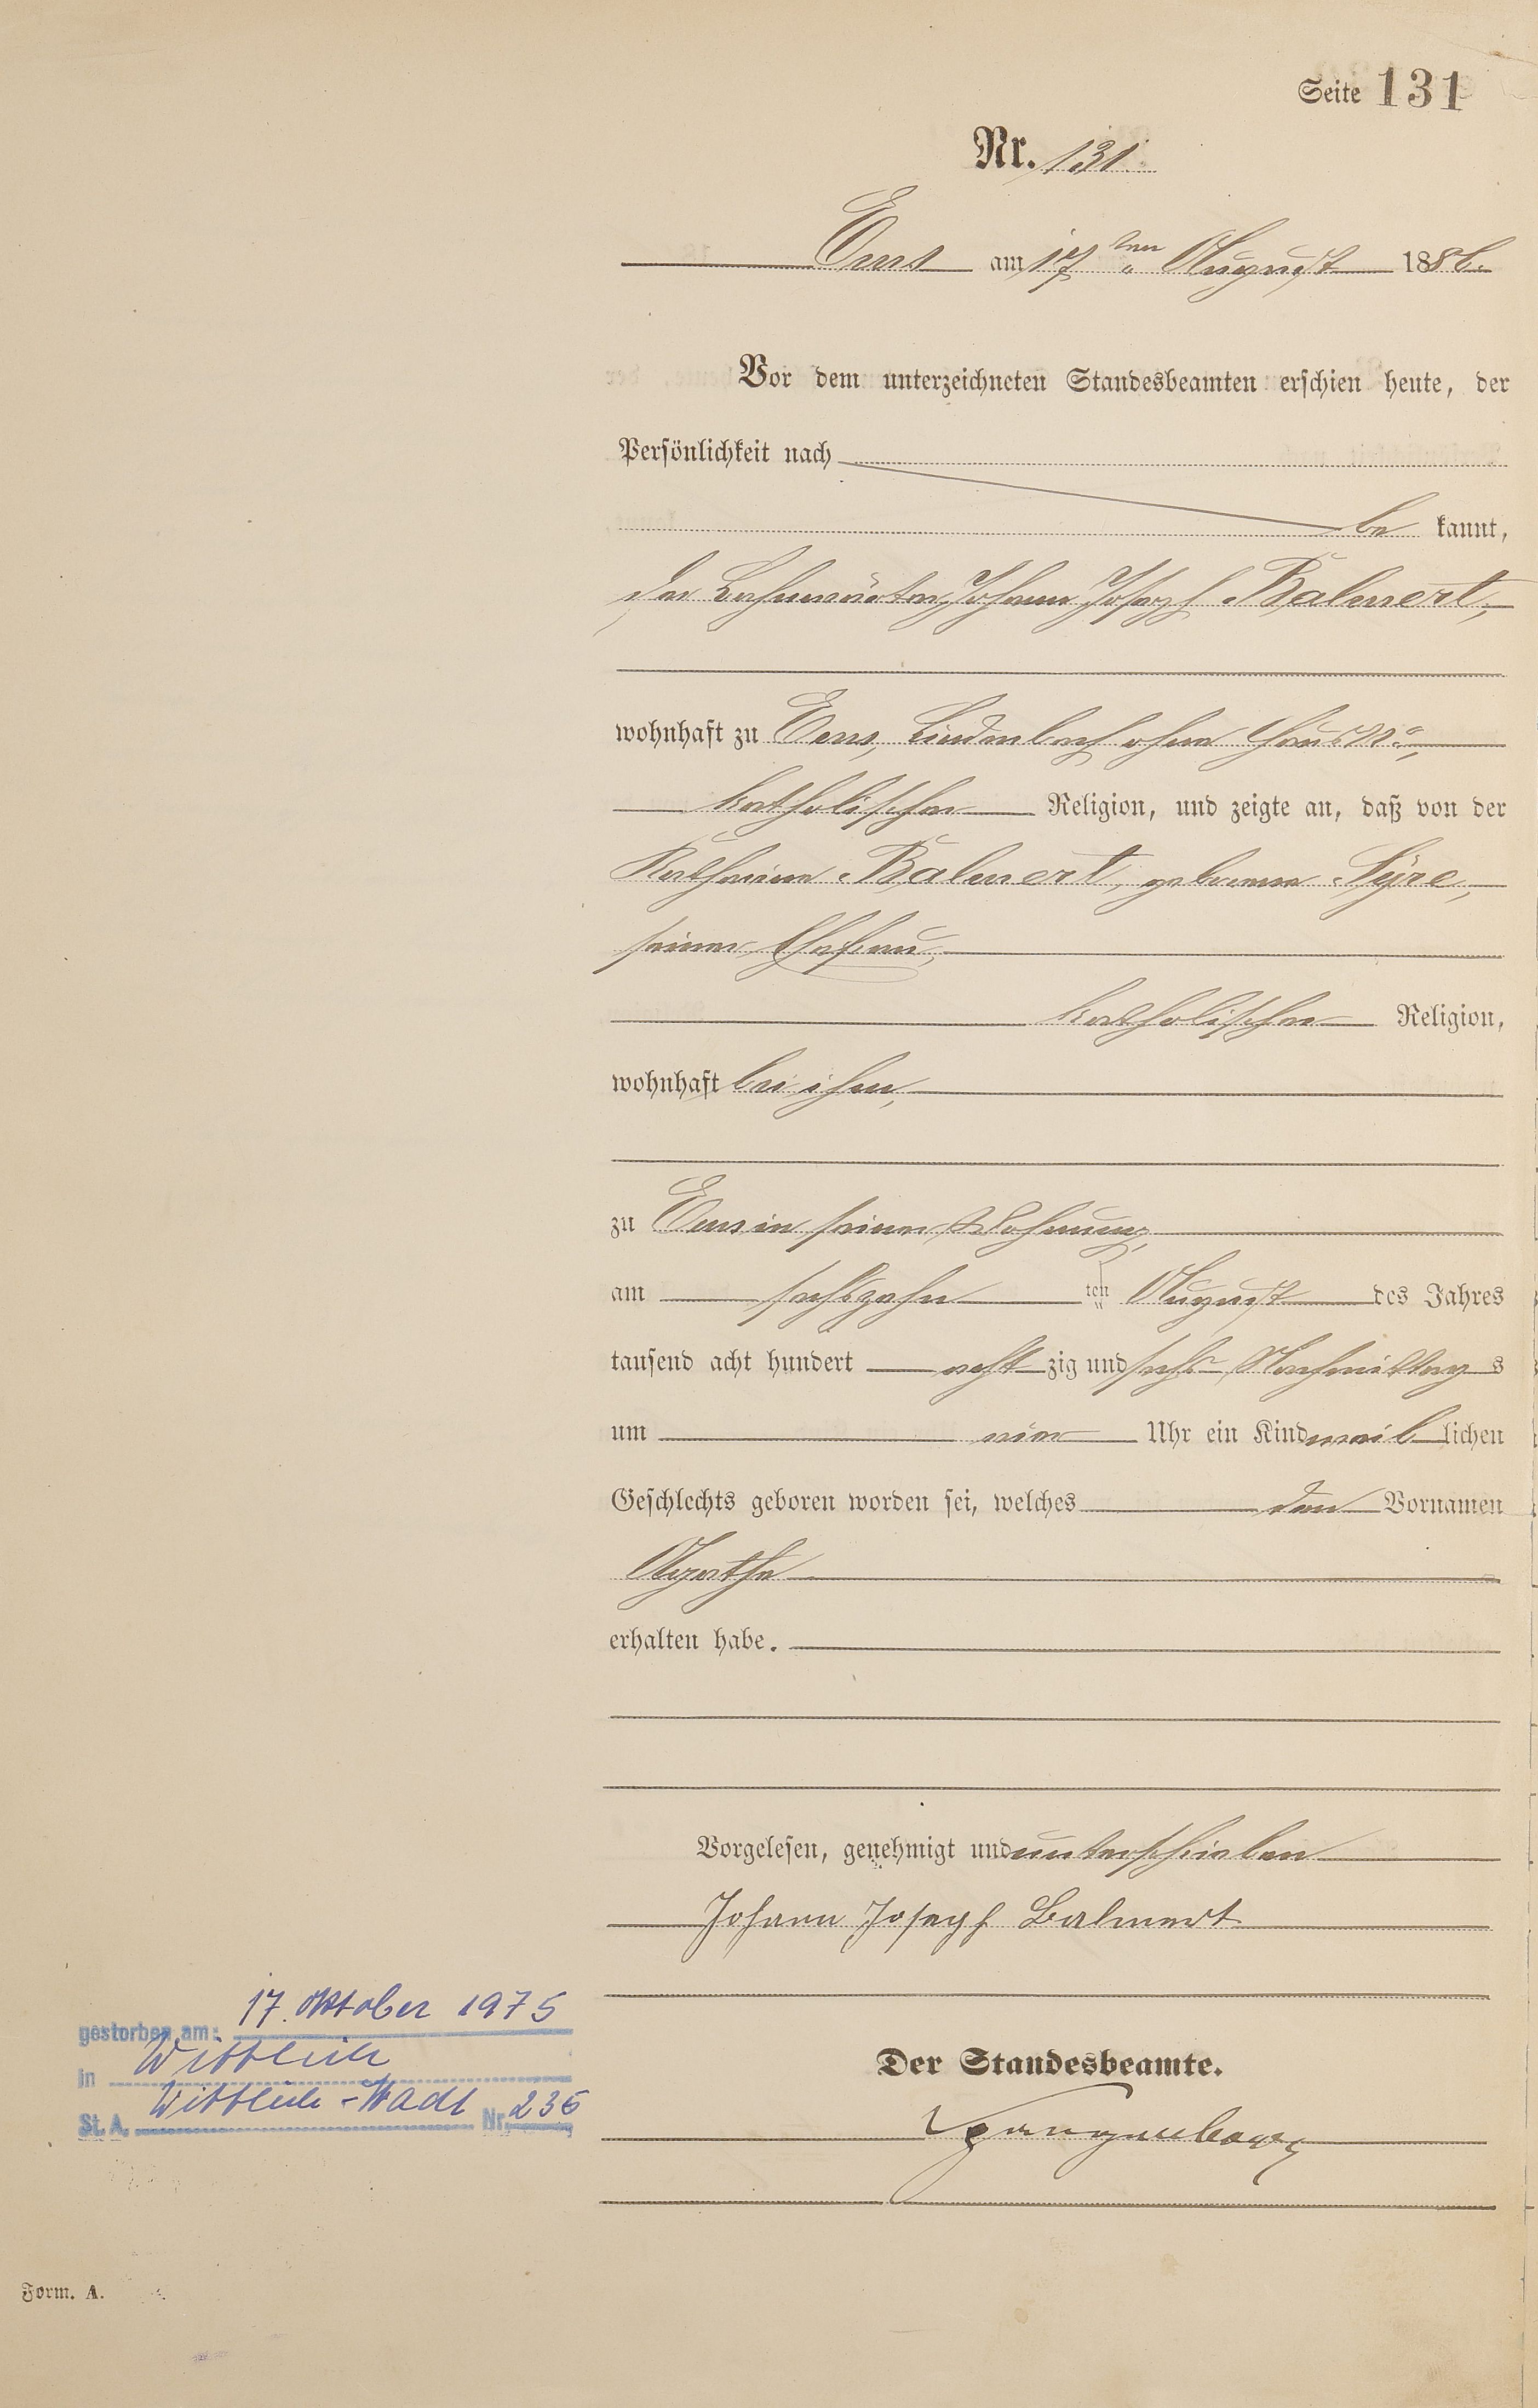 Seite 131
Nr. 131.
Ems am 17ten August 1886.
Vor dem unterzeichneten Standesbeamten erschien heute, der
Persönlichkeit nach
be kannt,
der Bahnwärter Johann Joseph Balmert,
wohnhaft zu Ems, Lindenbach ohne Haus No,
katholischer Religion, und zeigte an, daß von der
Katharina Balmert, geborene Syre,
seiner Ehefrau,
katholischer Religion,
wohnhaft bei ihm,
zu Ems in seiner Wohnung,
am sechszehn ten August des Jahres
tausend acht hundert acht zig und sechs Nachmittag s
um vier Uhr ein Kind weib lichen
Geschlechts geboren worden sei, welches den Vornamen
Agatha
erhalten habe.
Vorgelesen, genehmigt und unterschrieben
Johann Joseph Balmert
Der Standesbeamte.
gestorben am: 17. Oktober 1975
in Wittlich
St. A. Wittlich-Stadt Nr. 236
Form. A.